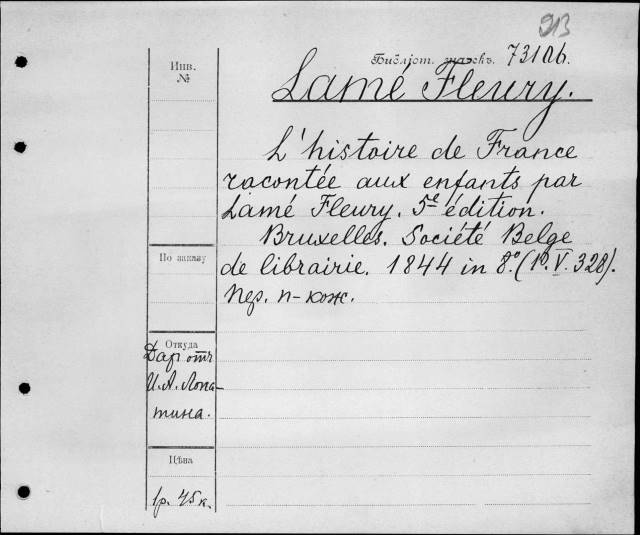 913
Библіот. знакъ. 73106.
Инв.
№
Lamé Fleury.
L'histoire de France
racontée aux enfants par
Lamé Fleury. 5e édition.
Bruxelles. Société Belge
de librairie. 1844 in 8°. (1º. V. 328).
Пер. п-кож.
По заказу
Откуда
Даръ отъ
И. А. Лопа-
тина.
Цѣна
1р. 45к.